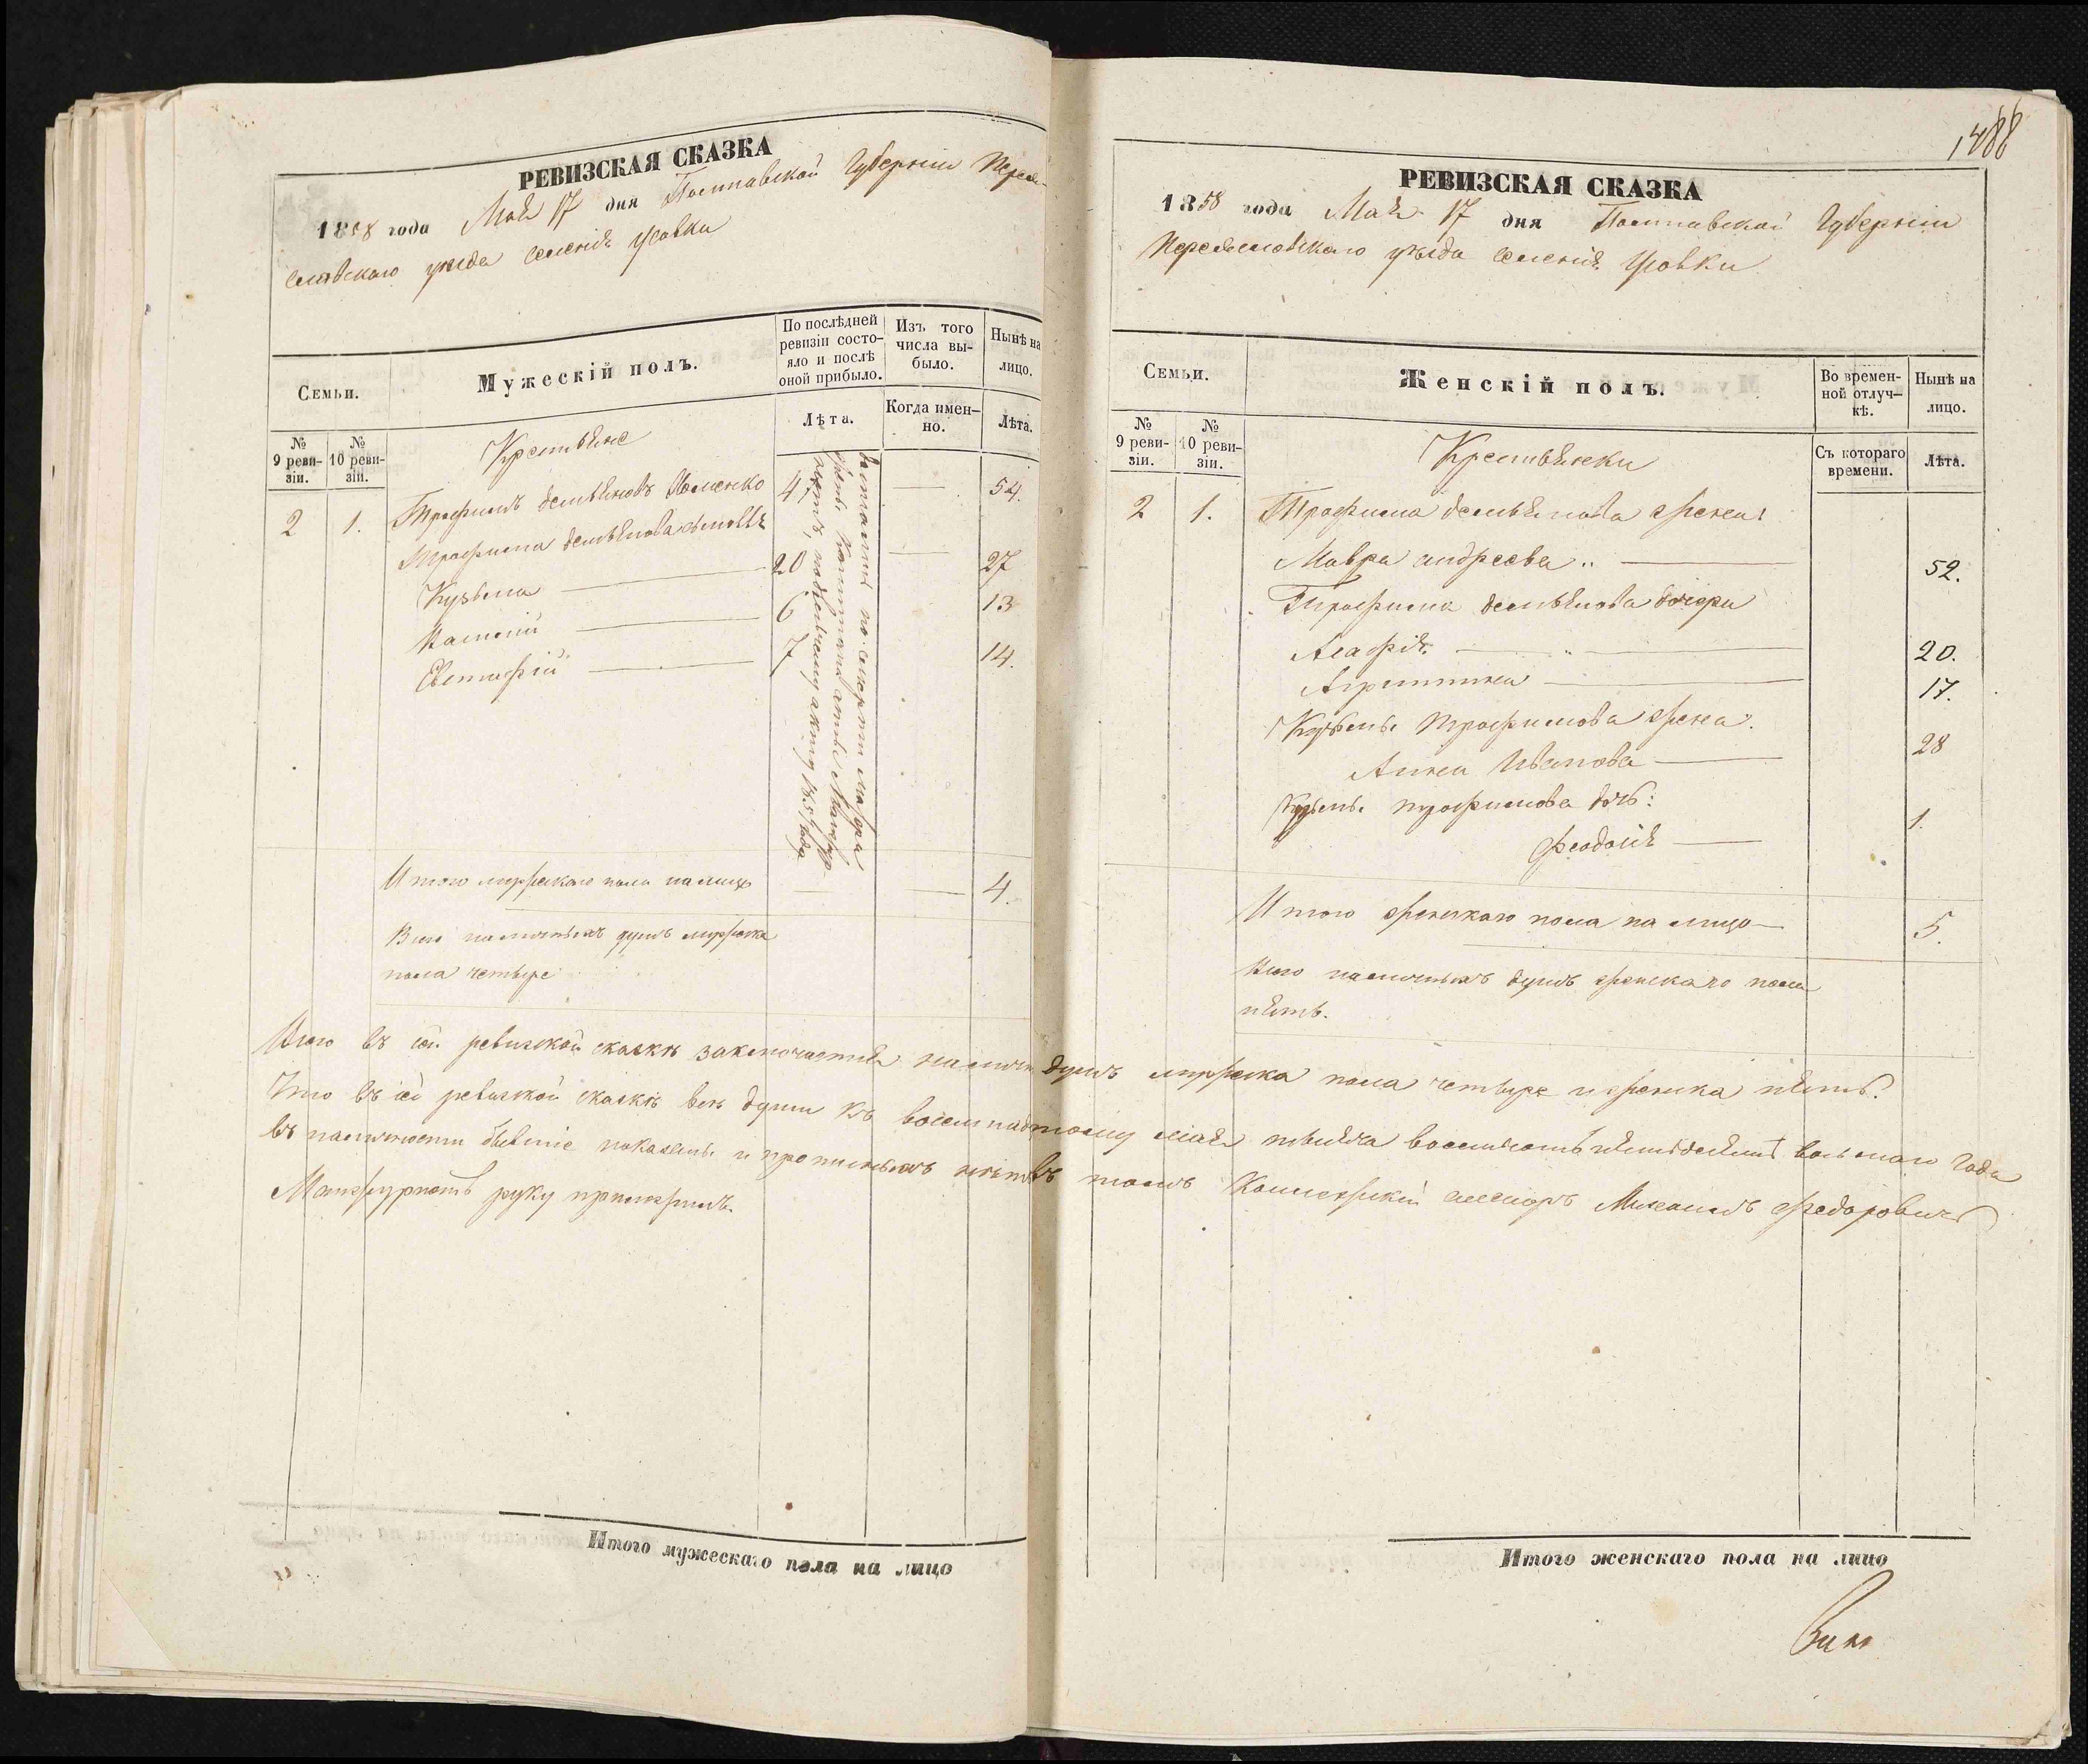 РЕВИЗСКАЯ СКАЗКА
1858 года Мая 17 дня Полтавской Губерніи Перея-
славскаго уезда селенія Усовки
Семьи.
Мужескій полъ.
По послѣдней ревизіи состо-
яло и послѣ оной прибыло.
Изъ того числа вы-
было.
Нынѣ на лицо.
№ 9 реви-
зіи.
№ 10 реви-
зіи.
Лѣта.
Когда имен-
но.
Лѣта.
Крестьяне
2 1. Трофимъ Демьяновъ 47 54.
Трофима Демьянова сыновья
Кузьма 20 27
6 13
Евстафій 7 14.
Итого мужескаго пола на лицо 4.
Всего наличныхъ душъ мужеска
пола четыре
1488
РЕВИЗСКАЯ СКАЗКА
1858 года Мая 17 дня Полтавской Губерніи
Переяславскаго уѣзда селенія Усовки
Семьи.
Женскій полъ.
Во времен-
ной отлуч-
кѣ.
Нынѣ на лицо.
№ 9 реви-
зіи.
№ 10 реви-
зіи.
Съ котораго времени.
Лѣта.
Крестьянки
2 1. Трофима Демьянова жена
Мавра Андреева 52.
Трофима Демьянова дочери
Агафія 20.
Агрипина 17.
Кузьмы Трофимова жена.
Анна Иванова 28
Кузьмы Трофимова дочь:
Феодосія 1.
Итого женскаго пола на лицо 5.
Всего наличныхъ душъ женскаго пола
пять.
Всего въ сей ревизской сказкѣ заключается налични душъ мужеска пола четыре и женска пять.
Что въ сей ревизской сказкѣ все души къ восемнадцатому мая тысяча восемьсотъ пятьдесятъ года
въ наличности бывшіе показаны и прописныхъ нѣтъ въ томъ Коллежскій асесоръ Михаилъ Федоровичъ
руку приложилъ.
Итого мужескаго пола на лицо
Итого женскаго пола на лицо